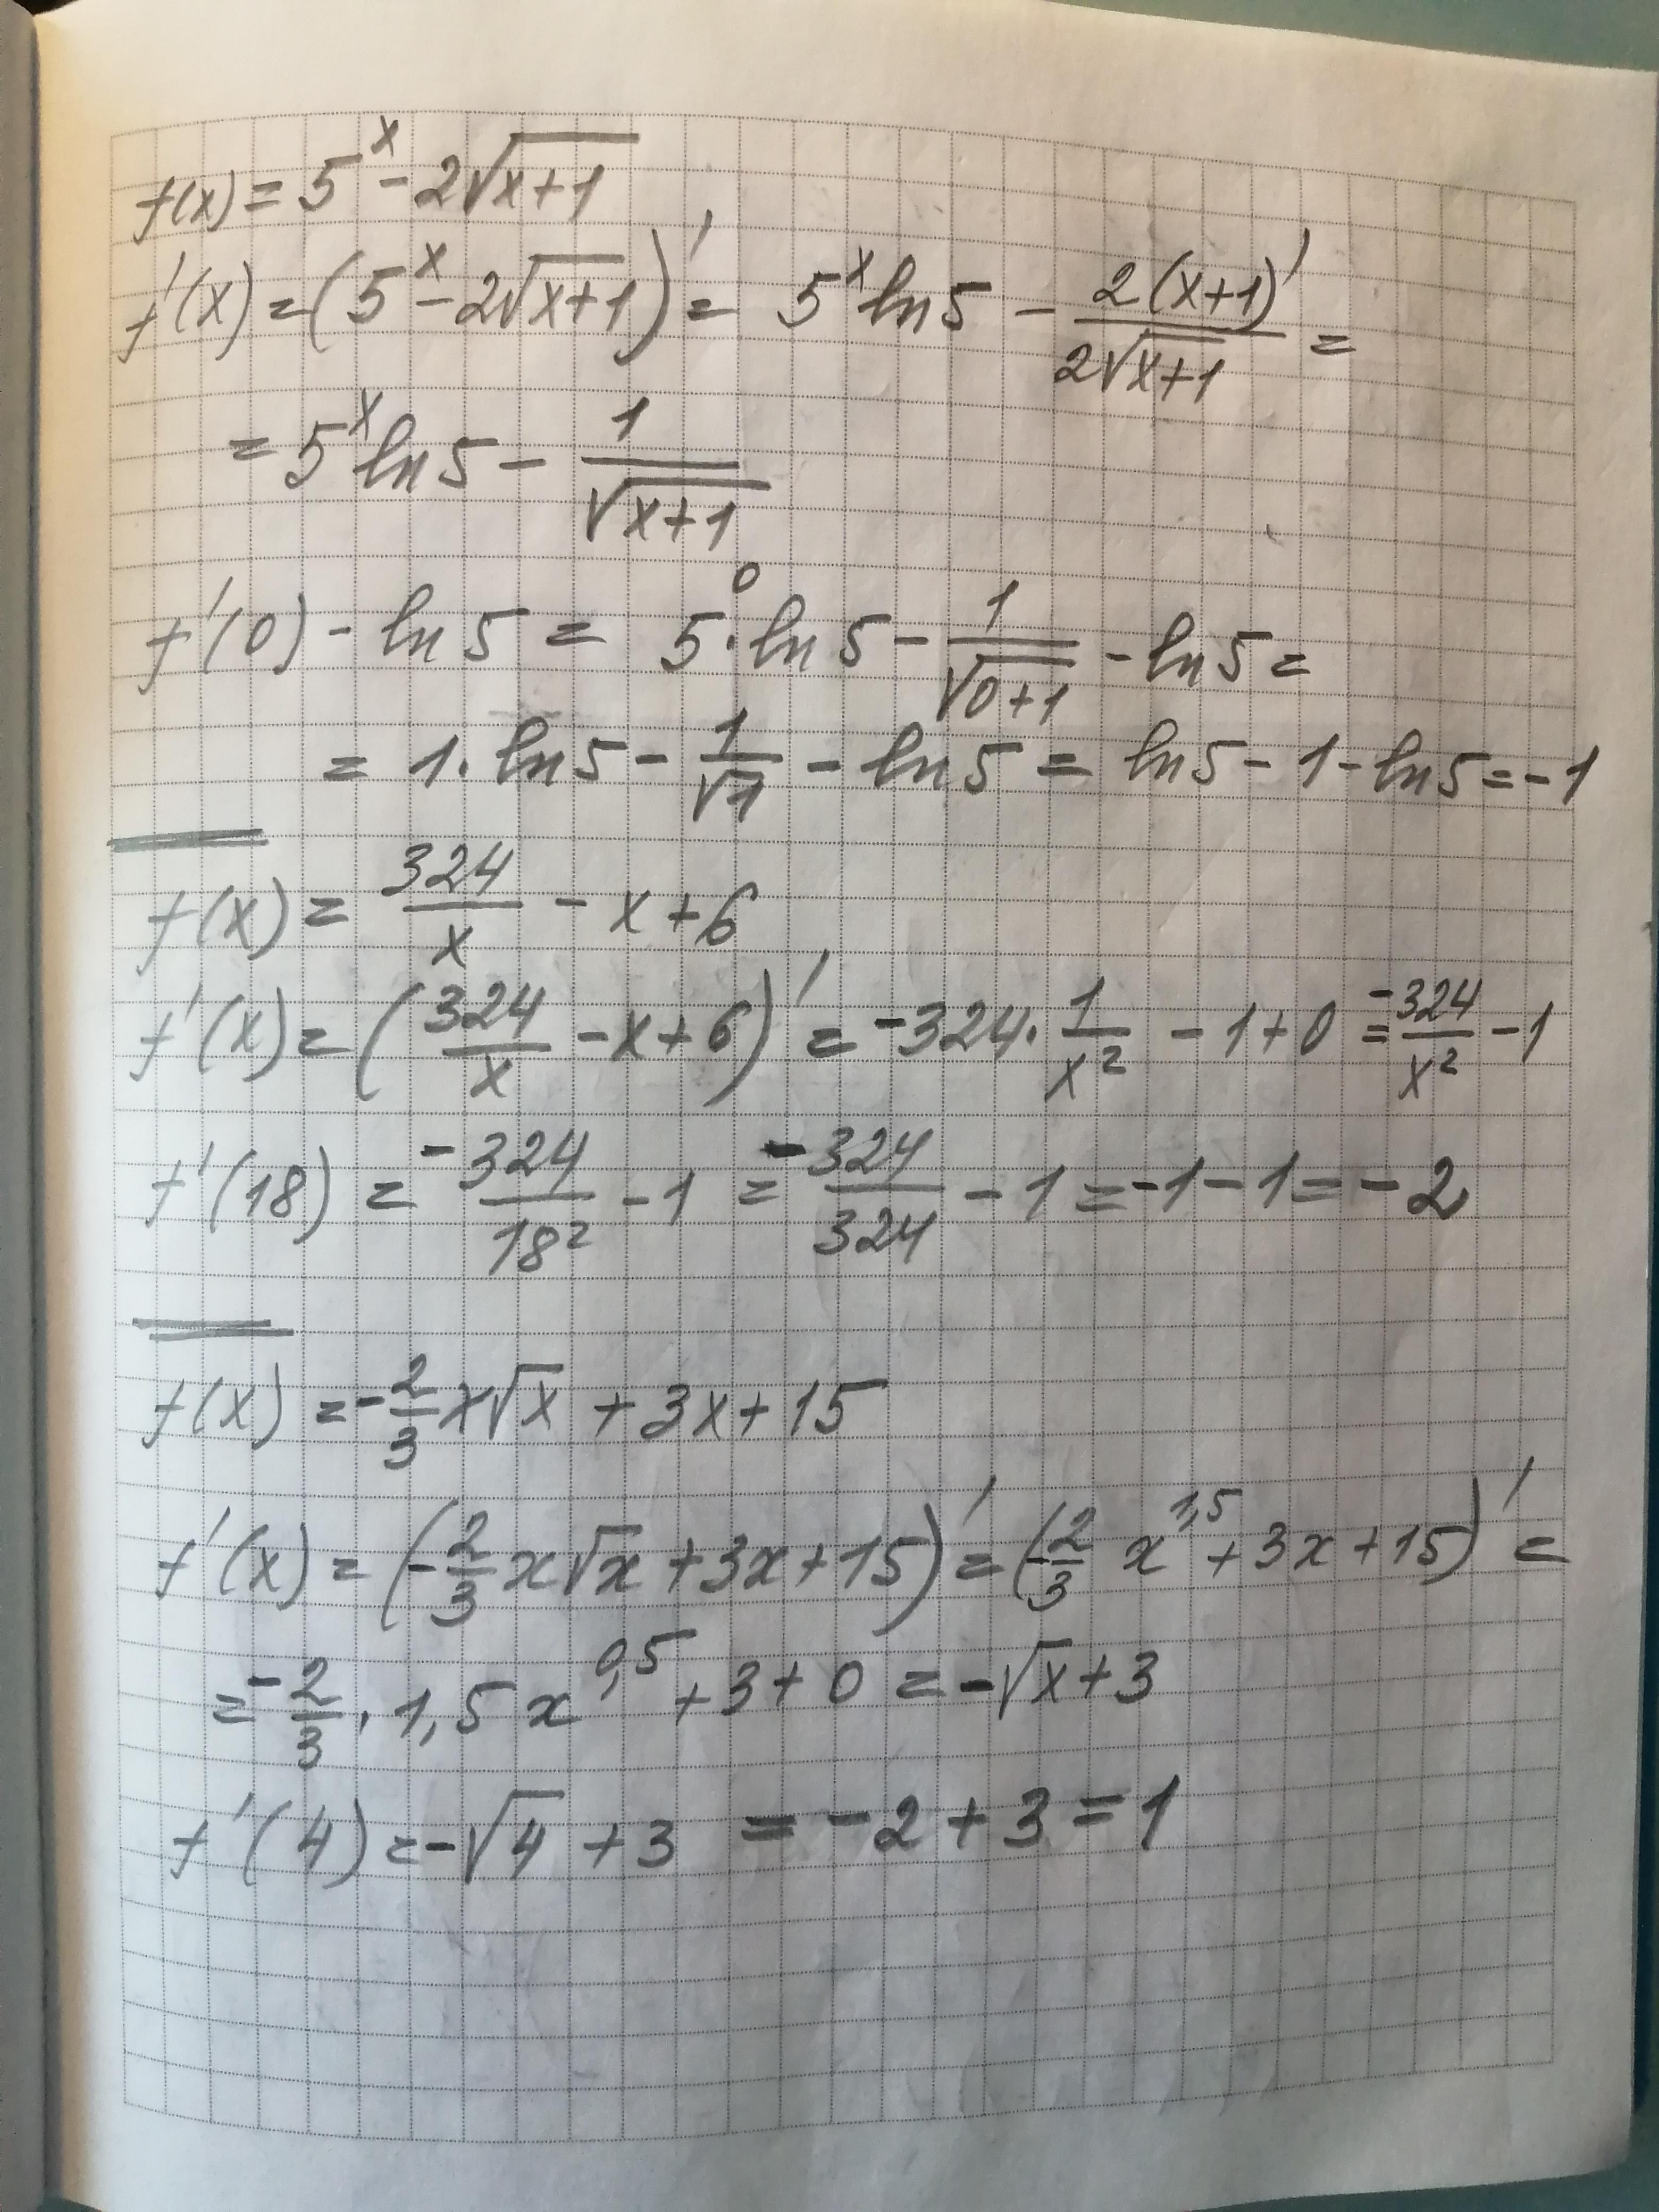 f(x) = 5^x - 2√(x+1)
f'(x) = (5^x - 2√(x+1))' = 5^x ln5 - (2(x+1)')/(2√(x+1)) =
= 5^x ln5 - 1/√(x+1)
f'(0) - ln5 = 5^0 · ln5 - 1/√(0+1) - ln5 =
= 1 · ln5 - 1/√1 - ln5 = ln5 - 1 - ln5 = -1
f(x) = 324/x - x + 6
f'(x) = (324/x - x + 6)' = -324 · 1/x² - 1 + 0 = -324/x² - 1
f'(18) = -324/18² - 1 = -324/324 - 1 = -1 - 1 = -2
f(x) = -2/3 x√x + 3x + 15
f'(x) = (-2/3 x√x + 3x + 15)' = (-2/3 x^1,5 + 3x + 15)' =
= -2/3 · 1,5 x^0,5 + 3 + 0 = -√x + 3
f'(4) = -√4 + 3 = -2 + 3 = 1